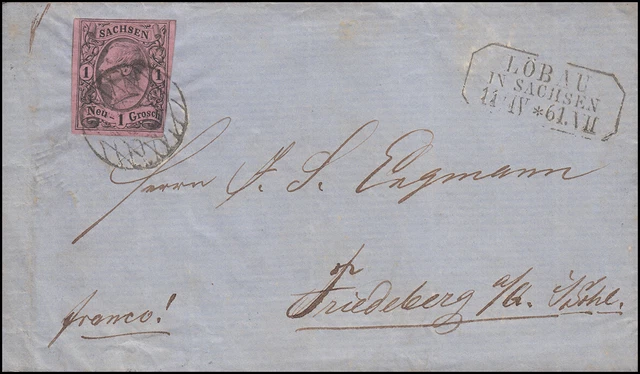 SACHSEN
1 1
Neu - 1 Grosch
LÖBAU
IN SACHSEN
11 IV * 61. VII
Herrn F. S. Engmann
Friedeberg a/Q.
franco!